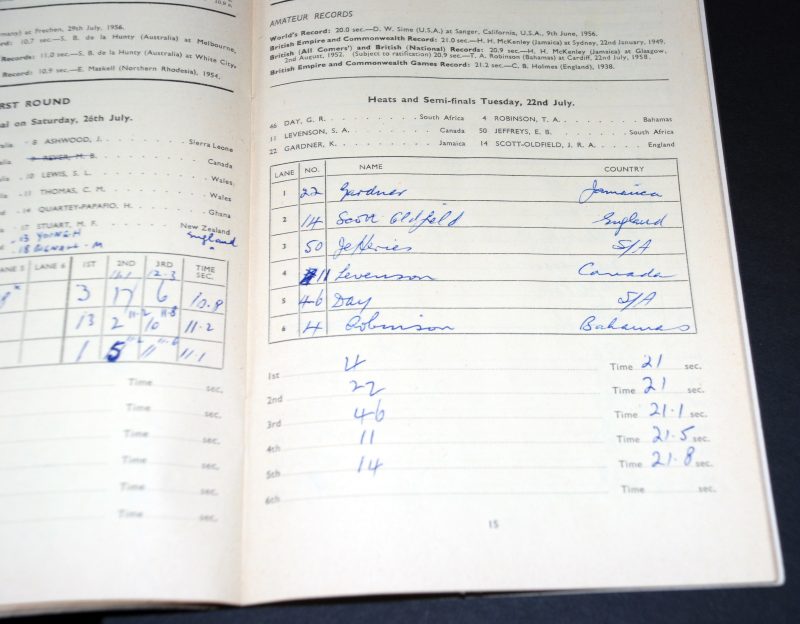 mano) at Frechen, 29th July, 1956.
ord: 10.7 sec.—S. B. de la Hunty (Australia) at Melbourne,
Records: 11.0 sec.—S. B. de la Hunty (Australia) at White City,
Record: 10.9 sec.—E. Maskell (Northern Rhodesia), 1954.
RST ROUND
al on Saturday, 26th July.
alia 8 ASHWOOD, J. Sierra Leone
alia 9 REYER, M. B. Canada
alia 10 LEWIS, S. L. Wales
alia 11 THOMAS, C. M. Wales
14 QUARTEY-PAPAFIO, H. Ghana
17 STUART, M. F. New Zealand
13 YOUNG H England
18 BIGNAL - M
LANE 5 LANE 6 1ST 2ND 3RD TIME SEC.
11.1 12.3
3 17 6 10.9
13 2 11.2 10 11.8 11.2
1 5 11 11.1
Time sec.
Time sec.
Time sec.
Time sec.
Time sec.
Time sec.
AMATEUR RECORDS
World's Record: 20.0 sec.—D. W. Sime (U.S.A.) at Sanger, California, U.S.A., 9th June, 1956.
British Empire and Commonwealth Record: 21.0 sec.—H. H. McKenley (Jamaica) at Sydney, 22nd January, 1949.
British (All Comers') and British (National) Records: 20.9 sec.—H. H. McKenley (Jamaica) at Glasgow,
2nd August, 1952. (Subject to ratification) 20.9 sec.—T. A. Robinson (Bahamas) at Cardiff, 22nd July, 1958.
British Empire and Commonwealth Games Record: 21.2 sec.—C. B. Holmes (England), 1938.
Heats and Semi-finals Tuesday, 22nd July.
46 DAY, G. R. South Africa 4 ROBINSON, T. A. Bahamas
11 LEVENSON, S. A. Canada 50 JEFFREYS, E. B. South Africa
22 GARDNER, K. Jamaica 14 SCOTT-OLDFIELD, J. R. A. England
LANE NO. NAME COUNTRY
1 22 Gardner Jamaica
2 14 Scott Oldfield England
3 50 Jefferies S/A
4 11 Levenson Canada
5 46 Day S/A
6 4 Robinson Bahamas
1st 4 Time 21 sec.
2nd 22 Time 21 sec.
3rd 46 Time 21.1 sec.
4th 11 Time 21.5 sec.
5th 14 Time 21.8 sec.
6th Time sec.
15